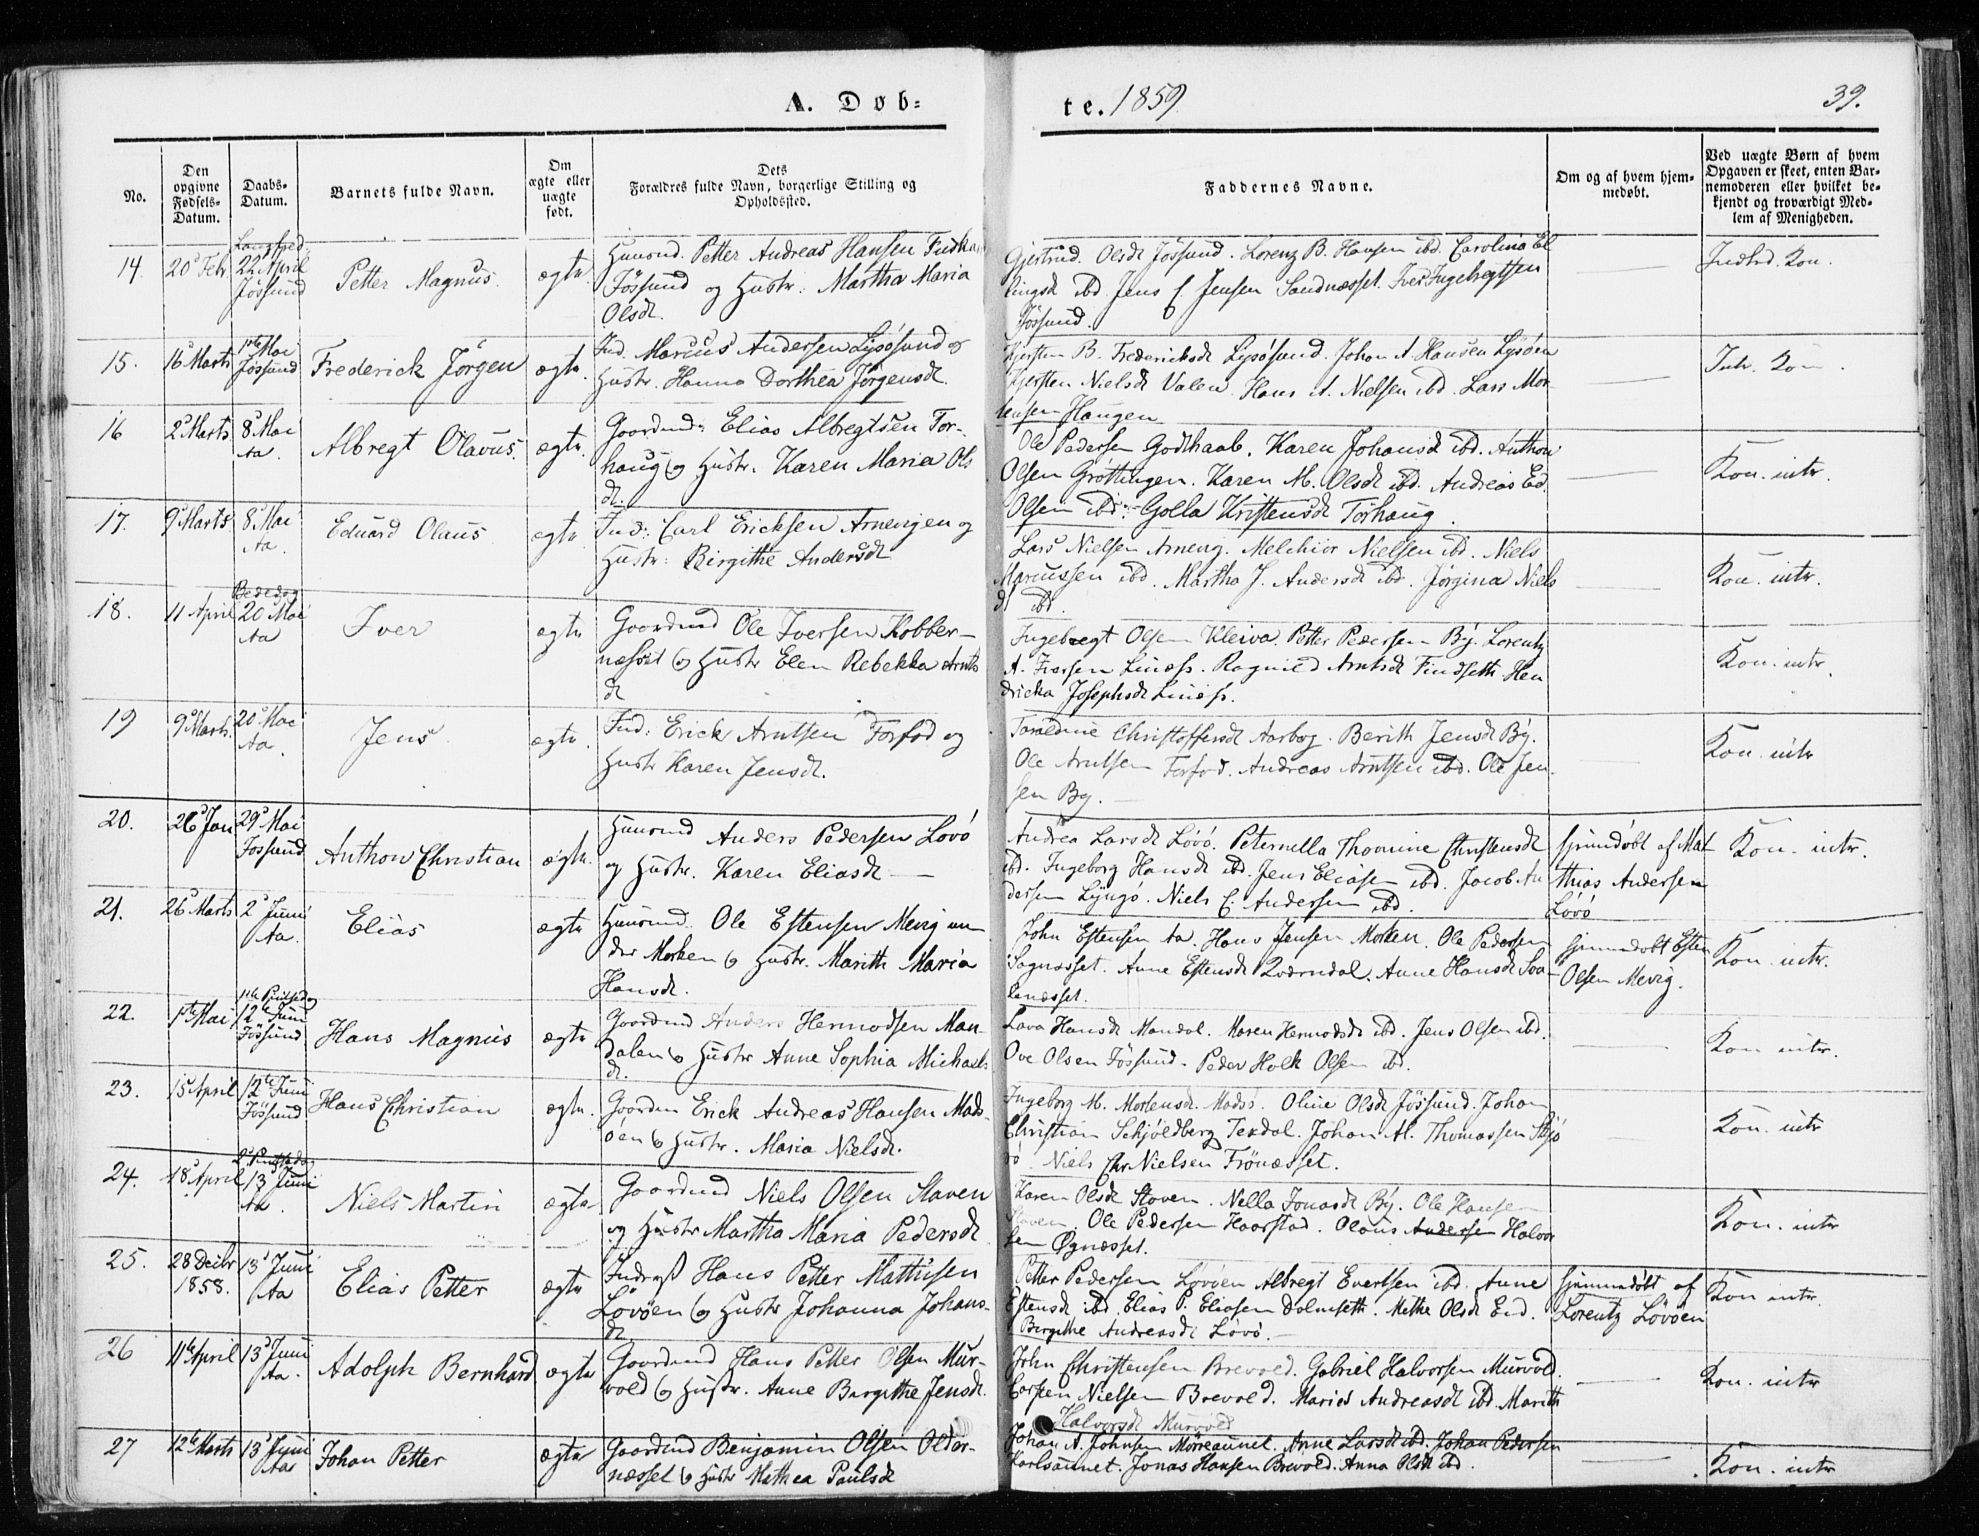 A. Døb=
te. 1859
39.
No.
Den opgivne Fødsels-Datum.
Daabs-Datum.
Barnets fulde Navn.
Om ægte eller uægte født.
Dets Forældres fulde Navn, borgerlige Stilling og Opholdssted.
Faddernes Navne.
Om og af hvem hjem-medøbt.
Ved uægte Børn af hvem Opgaven er skeet, enten Bar-nemoderen eller hvilket be-kjendt og troværdigt Med-lem af Menigheden.
14. 20 Febr 22 April Jössund Petter Magnus ægte
Huusmd. Petter Andreas Hansen
Jössund og Hustr: Martha Maria
Olsdt.
Gjertrud Olsdt Jössund. Lorenz B. Hansen ibd. Carolina El
lingsdt ibd. Jens C. Jensen Sandnæsset. Iver Ingebregtsen
Jössund.
15. 16 Marts 1ste Mai Jössund Frederick Jörgen ægte
Ind. Marcus Andersen Lysösund og
Hustr. Hanna Dorthea Jörgensdt.
Kjersten B. Fredericksdt Lysösund. Johan A. Hansen Lysöen
Kjersten Nielsdt Valen. Hans A. Nielsen ibd. Lars Mor-
tensen Haugen
16 2 Marts 8 Mai Aa. Albregt Olavus. ægte
Gaardmd: Elias Albregtsen Tor-
haug og Hustr. Karen Maria Ols
dt.
Ole Pedersen Godthaab. Karen Johansdt ibd. Anthon
Olsen Gröttingen. Karen M. Olsdt ibd. Andreas Ed.
Olsen ibd: Golla Kristensdt Torhaug.
Kon. intr.
17. 9 Marts 8 Mai Aa. Eduard Olaus ægte
Ind: Carl Ericksen Arnevigen og
Hustr: Birgithe Andersdt
Lars Nielsen Arnevig. Melchior Nielsen ibd. Niels
Marcussen ibd. Martha J. Andersdt ibd. Jörgina Niels
dt ibd.
Kon. intr.
18. 11 April Bededag 20 Mai Aa Iver ægte
Gaardmd Ole Iversen Kobber-
næsset og Hustr Elen Rebekka Arnts
dt
Ingebregt Olsen Kleiva. Petter Pedersen By. Lorentz
A. Iversen Linæss. Ragnild Arntsdt Findseth. Hen
dricka Josephsdt Linæss.
Kon. intr.
19 9 Marts. 20 Mai Aa. Jens ægte
Ind: Erick Arntsen Forfod og
Hustr Karen Jensdt.
Christoffersdt Aarbog. Berith Jensdt By.
Ole Arntsen Forfod. Andreas Arntsen ibd. Ole Jen-
sen By.
Kon. intr
20. 26 Jan 29 Mai Jossund Anthon Christian ægte.
Huusmd Anders Pedersen Lövö
og Hustr. Karen Eliasdt
Andrea Larsdt Lövö. Peternella Thomine Christensdt
ibd. Ingeborg Hansdt ibd. Jens Eliasen ibd. Jacob An
dersen Lyngö. Niels C. Andersen ibd.
Hjemdöbt af Mat
thias Andersen
Lövö
Kon. intr.
21. 26 Marts 2 Juni Aa. Elias ægte
Huusmd. Ole Estensen Mevig un-
der Morken og Hustr. Marith Maria
Hansdt.
John Estensen Aa. Hans Jensen Morken. Ole Pedersen
Sagnæsset. Anne Estensdt Qværndal. Anne Hansdt
Hjemmedöbt Esten
Olsen Mevig.
Kon. intr.
22. 1ste Mai 12te Juni Jössund Hans Magnus ægte
Gaardmd Anders Hermodsen Man-
dalen og Hustr Anne Sophia Michaels
dt.
Lava Hansdt Mandal. Maren Hermodsdt ibd. Jens Olsen ibd.
Ove Olsen Jössund. Peder Holk Olsen ibd.
Kon intr.
23. 15 April 12te Juni Jössund Hans Christian ægte.
Gaardm Erick Andreas Hansen Mads-
öen og Hustr. Maria Nielsdt.
Ingeborg M. Mortensdt Madsö. Oline Olsdt Jössund. Johan
Christian Schjöldberg Texdal. Johan M. Thomassen
Niels Chr Nielsen Frönæsset.
Kon. intr
24. 18 April 13 Juni Aa. Niels Martin ægte
Gaardmd Niels Olsen Staven
og Hustr Martha Maria Pedersdt
Karen Olsdt Stoven. Nella Jonasdt By. Ole Hansen
Staven. Ole Pedersen Haarstad. Olaus Andersen Halvor
sen Øgnæsset.
Kon. intr
25. 28 Decbr 1858. 13 Juni Aa Elias Petter ægte
Hans Petter Mathisen
Lövöen og Hustr Johanna Johans-
dt
Petter Pedersen Lövöen Albregt Evertsen ibd. Anne
Estensdt ibd. Elias P. Eliasen Dolmseth. Methe Olsdt Eid.
Birgithe Andreasdt Lövö.
Hjemmedöbt af
Lorentz Lövöen
Kon intr
26 11te April 13 Juni Aa. Adolph Bernhard ægte
Gaardmd Hans Petter Olsen Mur-
vold og Hustr. Anne Birgithe Jensdt.
John Christensen Brevold. Gabriel Halvorsen Murvold.
Nielsen Brevold. Maria Andreasdt ibd. Marith
Halvorsdt Murvold
Kon. intr
27 12te Marts 13 Juni Aa Johan Petter ægte
Gaardmd Benjamin Olsen Older-
næsset og Hustr Mathea Paulsdt
Johan A. Johnsen Mörreaunet. Anne Larsdt ibd. Johan Pedersen
Karlsaunet. Jonas Hansen Brevold. Anna Olsdt ibd.
Kon. intr